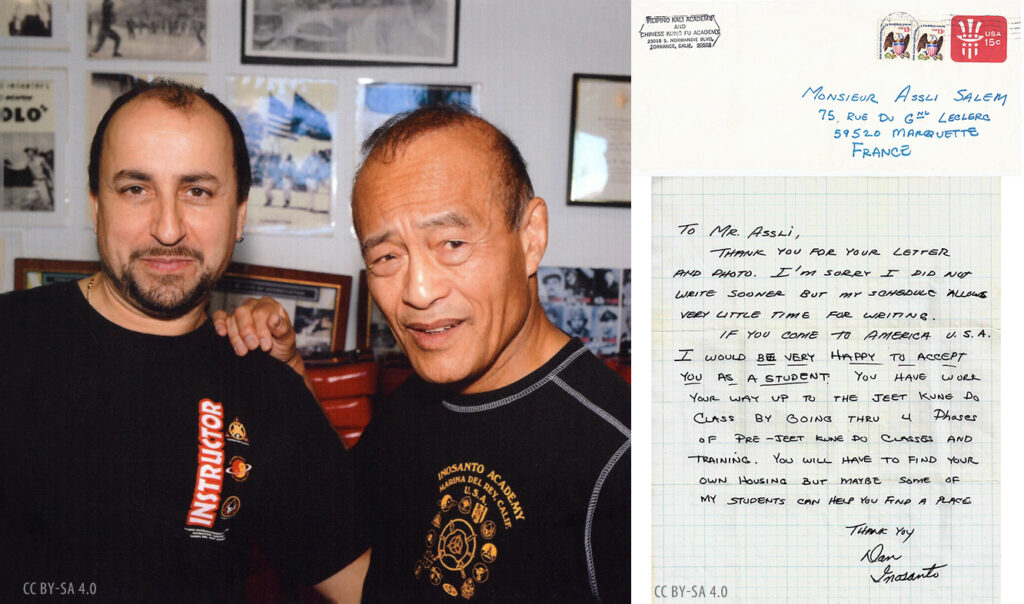 OLO
INSTRUCTOR
INOSANTO ACADEMY
MARINA DEL REY, CALIF.
U.S.A.
CC BY-SA 4.0
FILIPINO KALI ACADEMY
AND
CHINESE KUNG FU ACADEMY
23018 S. NORMANDIE BLVD.
TORRANCE, CALIF. 90502
13c
13c
USA
15c
MONSIEUR ASSLI SALEM
75, RUE DU GNL LECLERC
59520 MARQUETTE
FRANCE
TO MR. ASSLI,
THANK YOU FOR YOUR LETTER
AND PHOTO. I'M SORRY I DID NOT
WRITE SOONER BUT MY SCHEDULE ALLOWS
VERY LITTLE TIME FOR WRITING.
IF YOU COME TO AMERICA U.S.A.
I WOULD BE VERY HAPPY TO ACCEPT
YOU AS A STUDENT. YOU HAVE WORK
YOUR WAY UP TO THE JEET KUNE DO
CLASS BY GOING THRU 4 Phases
OF PRE-JEET KUNE DO CLASSES AND
TRAINING. YOU WILL HAVE TO FIND YOUR
OWN HOUSING BUT MAYBE SOME OF
MY STUDENTS CAN HELP YOU FIND A PLACE
THANK YOU
Dan
Inosanto
CC BY-SA 4.0